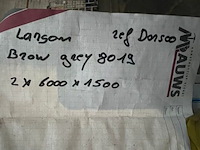 Larson ref Dorsoo
Brow grey 8019
2 x 6000 x 1500
MAUWS